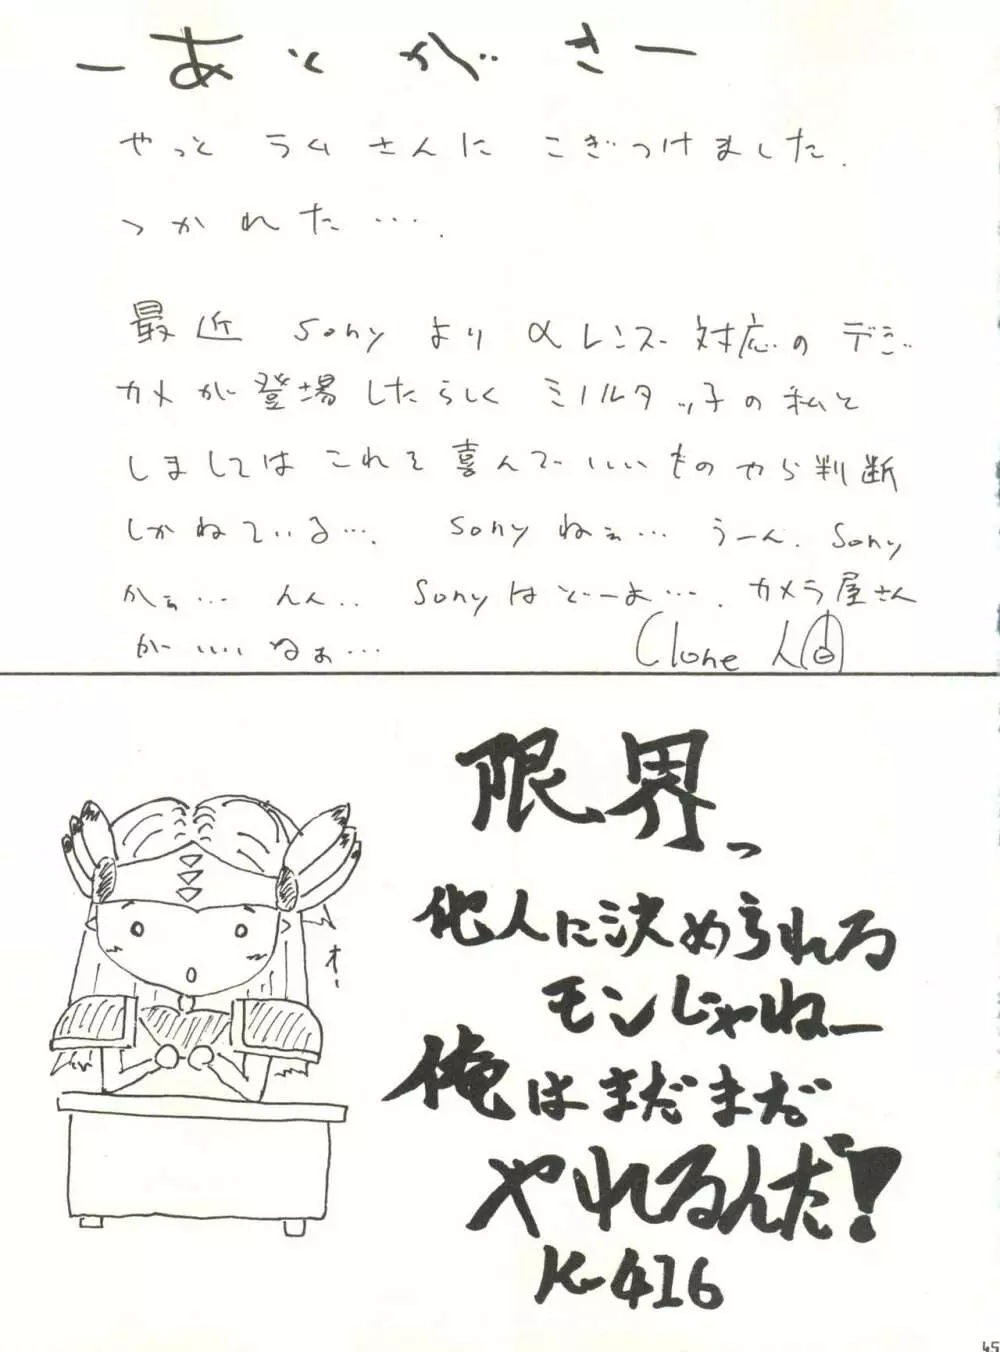 ーあとがきー
やっと ラムさんに こぎつけました.
つかれた….
最近 Sony より αレンズ対応のデジ
カメが登場したらしく ミノルタッ子の私と
しましてはこれを喜んでいいものやら判断
しかねている…. Sony ねぇ… うーん. Sony
かぁ… んん.. Sony はどーよ…. カメラ屋さん
がいいねぇ…
Clone 人間
限界っ
他人に決められる
モンじゃねー
俺はまだまだ
やれるんだ!
K-416
オー
45